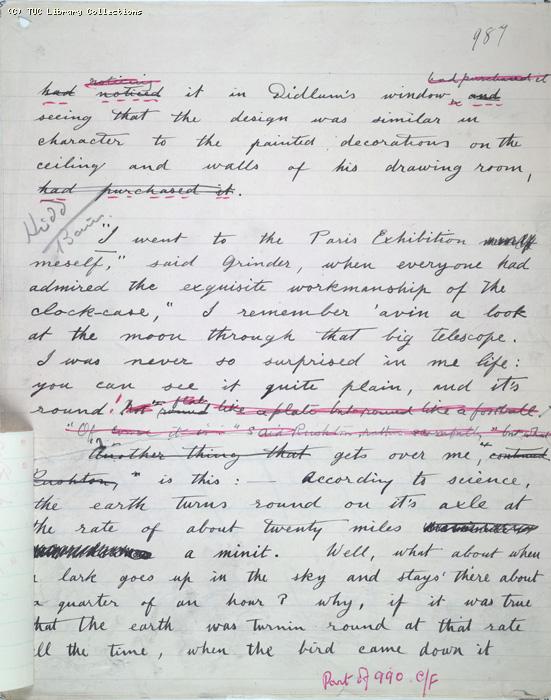 (C) TUC Library Collections
987
noticing had purchased it
had noticed it in Didlum's window, and
seeing that the design was similar in
character to the painted decorations on the
ceiling and walls of his drawing room,
had purchased it.
"I went to the Paris Exhibition
meself," said Grinder, when everyone had
admired the exquisite workmanship of the
clock-case, "I remember 'avin a look
at the moon through that big telescope.
I was never so surprised in me life:
you can see it quite plain, and it's
round! Not flat like a plate but round like a football
"Of course it is" said Rushton, "but what
Another thing that gets over me," continued
Rushton, "is this: — According to science,
the earth turns round on it's axle at
the rate of about twenty miles
a minit. Well, what about when
lark goes up in the sky and stays there about
a quarter of an hour? why, if it was true
hat the earth was turnin round at that rate
ll the time, when the bird came down it
Part of 990. C/F